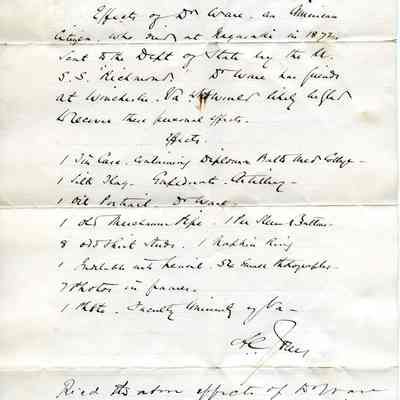 Effects of Dr Ware. an American
Citizen. who died at Nagasaki in 1872.
Sent to the Dept of State by the U.
S. S. "Richmond" Dr Ware has friends
at Winchester. Va. would likely be glad
to receive these personal effects.
Effects.
1 Tin Case. Containing Diploma Balto Med College -
1 Silk Flag. Confederate Artillery -
1 Oil Portrait. Dr Ware.
1 old Meerschaum Pipe. 1 Pr Sleeve Buttons
8 old Shirt Studs. 1 Napkin Ring
1 Indelible ink pencil. Small Photographs -
7 Photos in frames -
1 Photo. Faculty University of Va -
Recd the above effects of Dr Ware